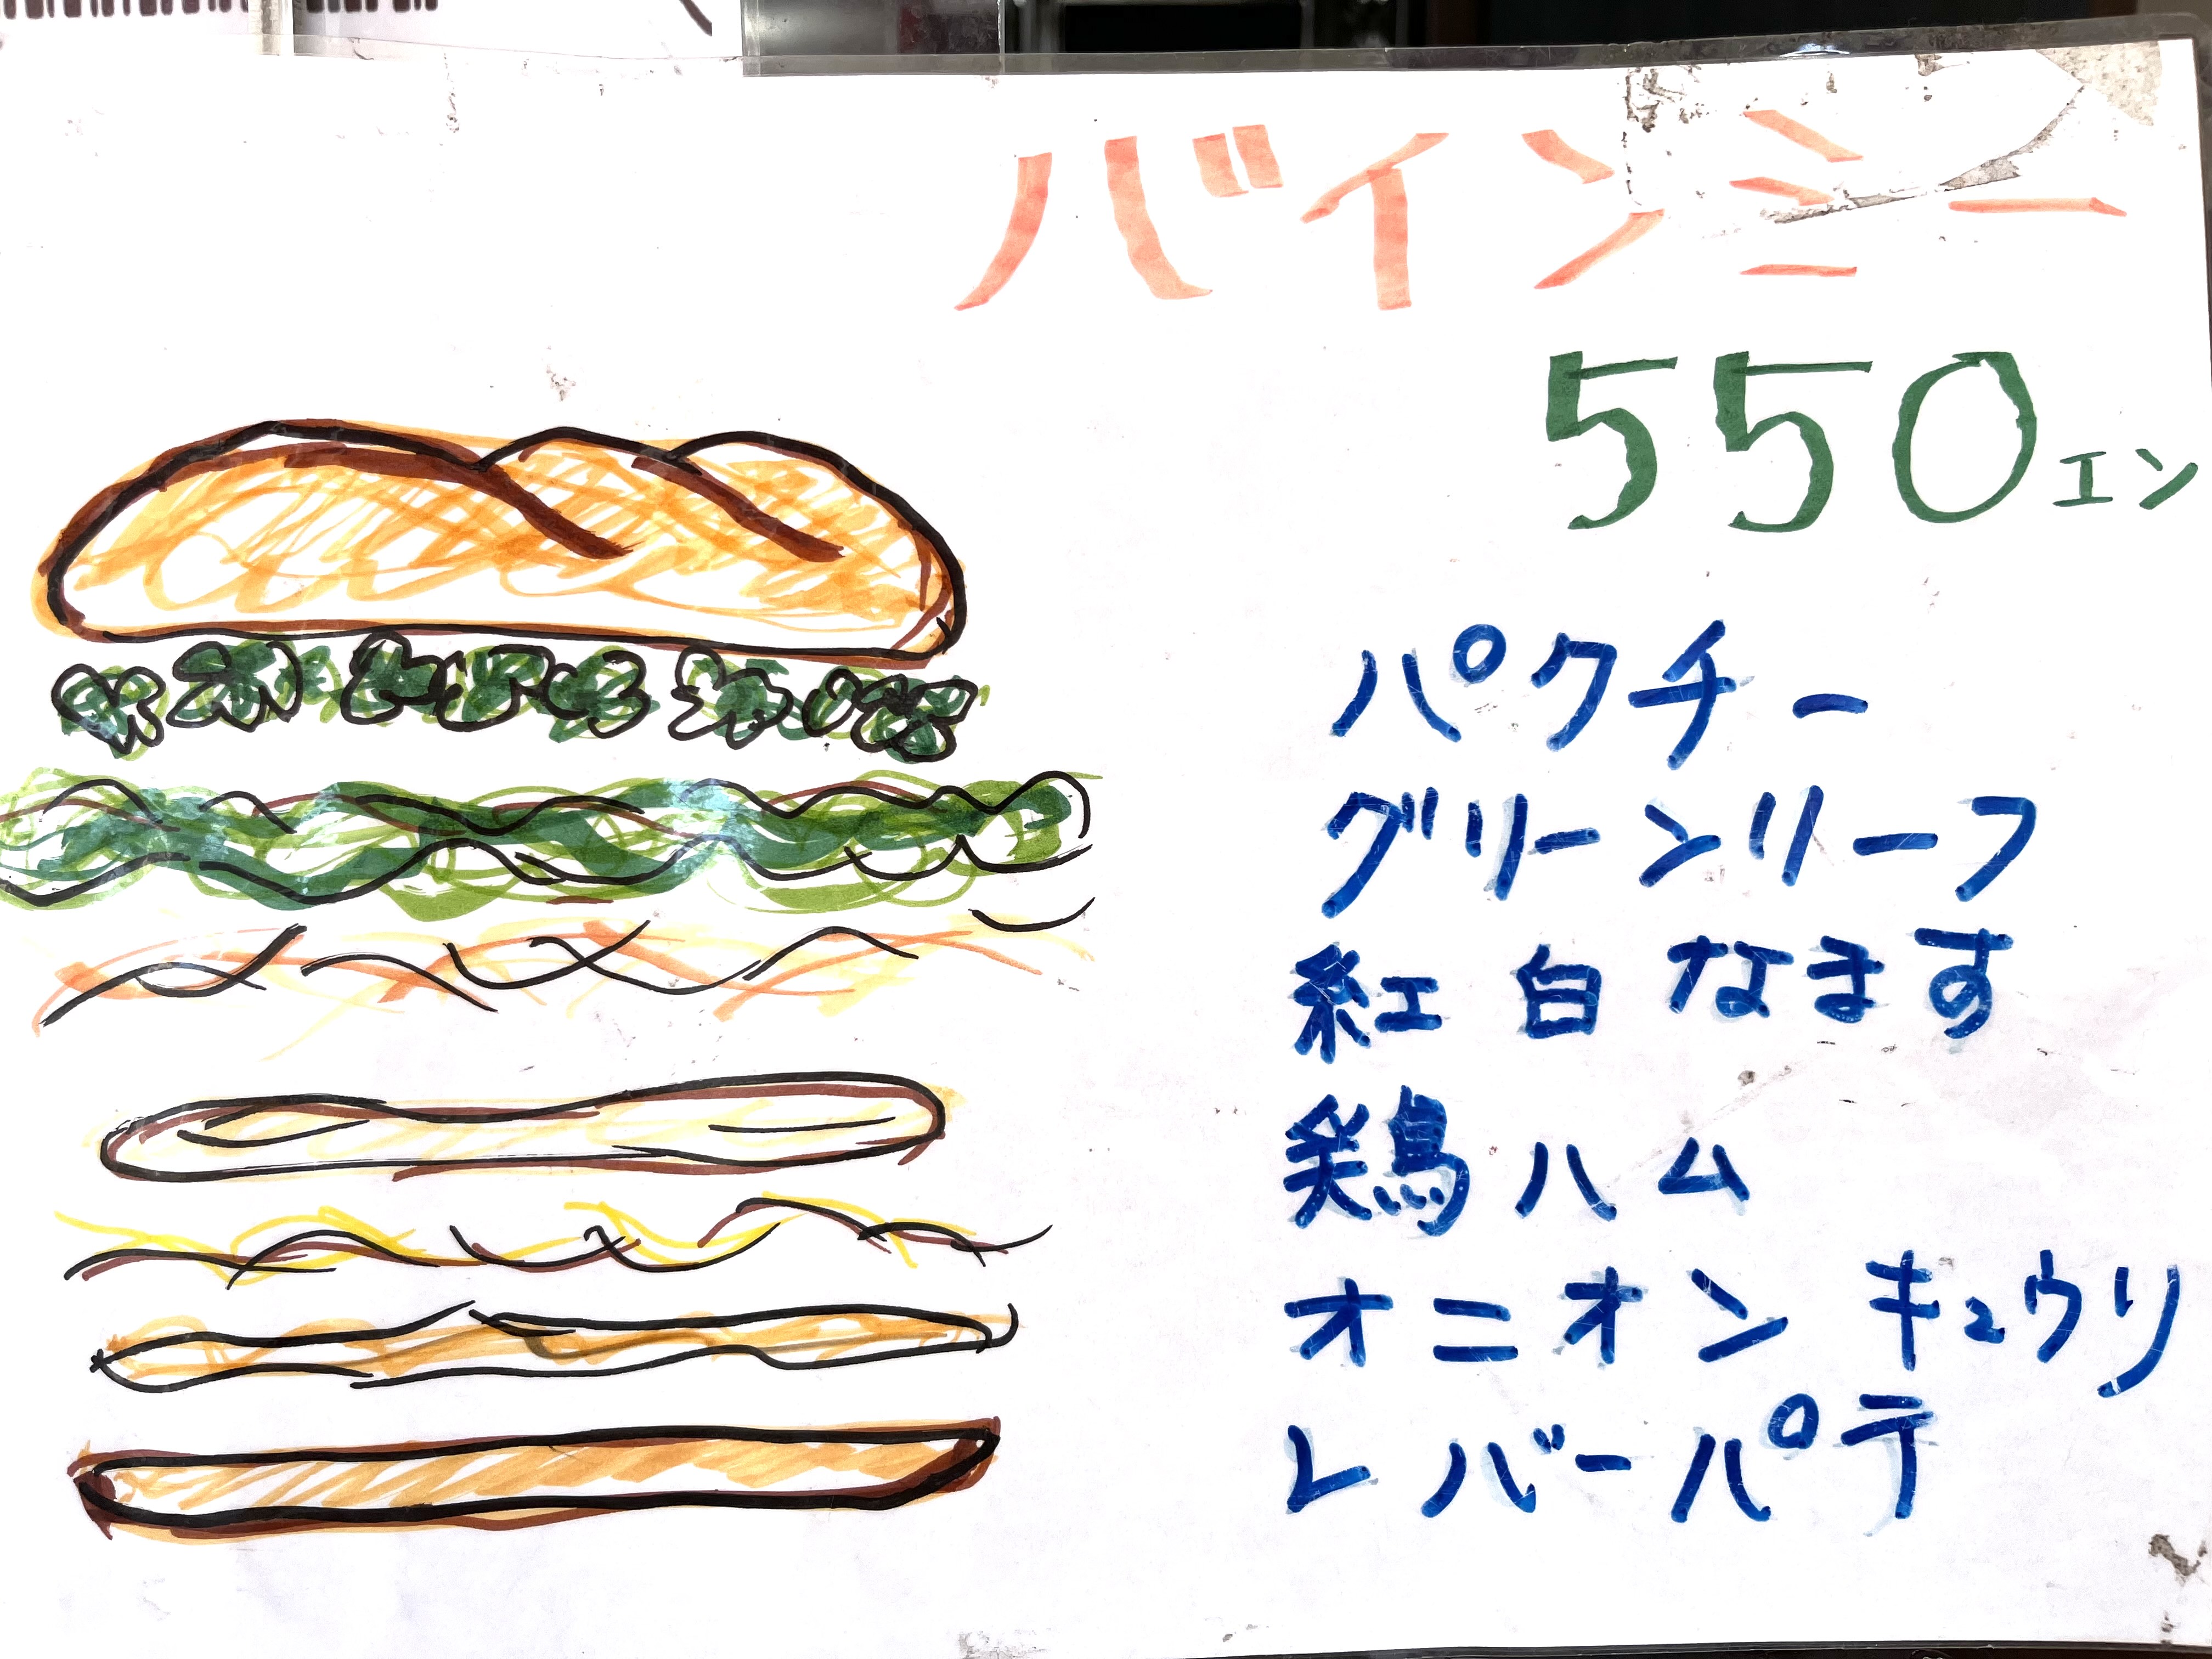 バインミー
550エン
パクチー
グリーンリーフ
紅白なます
鶏ハム
オニオン キュウリ
レバーパテ